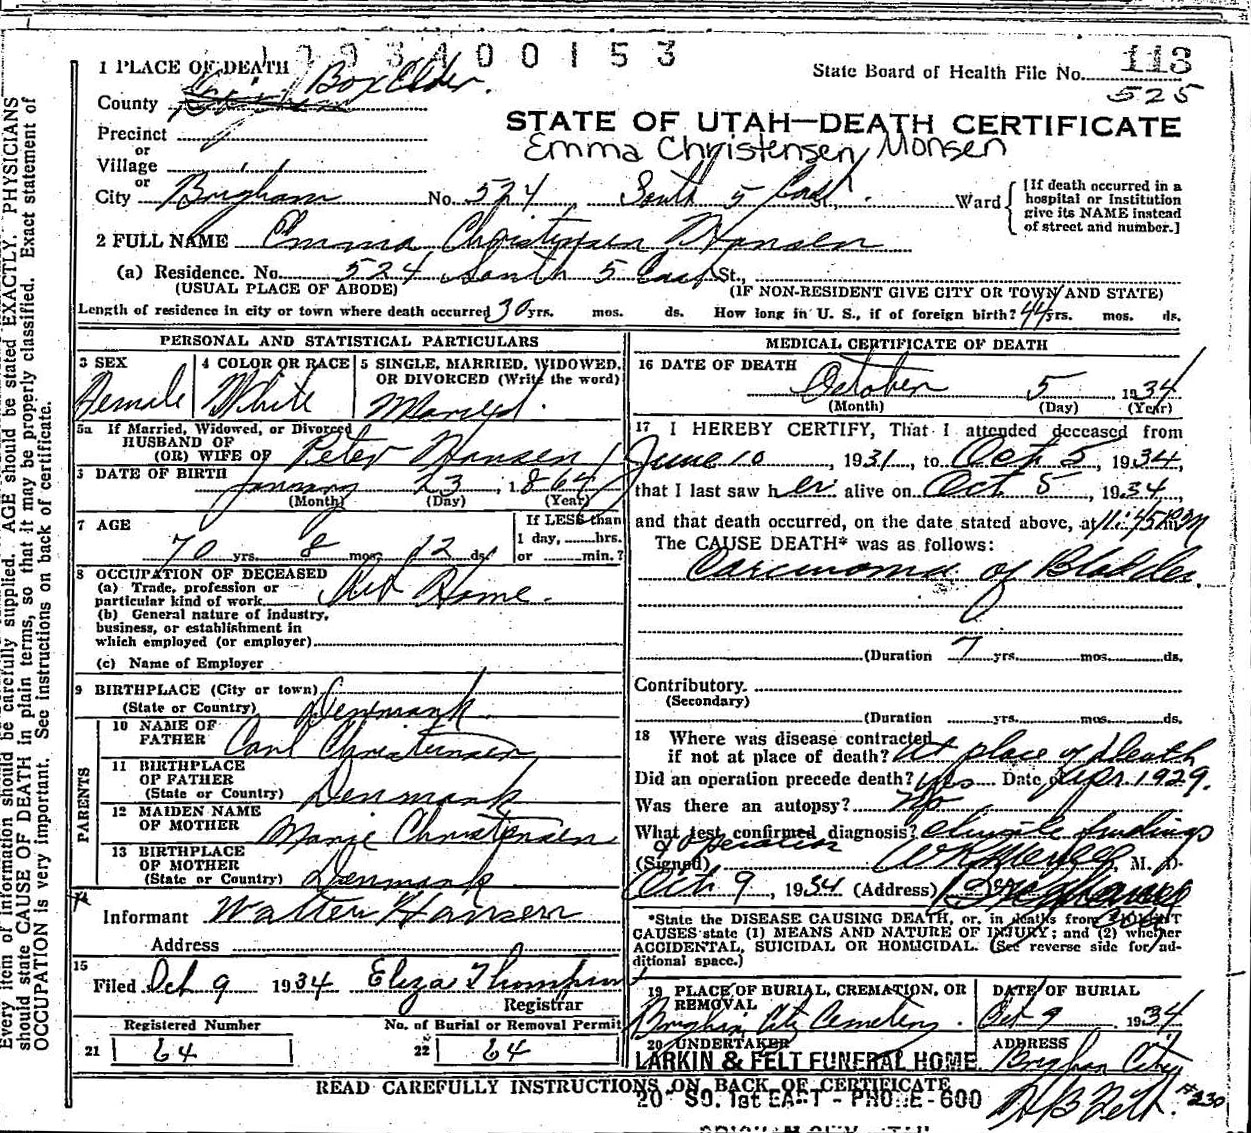 1 9 3 4 0 0 1 5 3
113
1 PLACE OF DEATH
State Board of Health File No.
525
County Box Elder.
STATE OF UTAH—DEATH CERTIFICATE
Precinct
Emma Christensen Monsen
or
Village
or
City Brigham No. 524 South 5 East. Ward
[If death occurred in a hospital or institution give its NAME instead of street and number.]
2 FULL NAME Emma Christensen Hansen
(a) Residence. No. 524 South 5 East St.,
(USUAL PLACE OF ABODE) (IF NON-RESIDENT GIVE CITY OR TOWN AND STATE)
Length of residence in city or town where death occurred 30 yrs. mos. ds. How long in U. S., if of foreign birth? 44 yrs. mos. ds.
PERSONAL AND STATISTICAL PARTICULARS
3 SEX Female
4 COLOR OR RACE White
5 SINGLE, MARRIED, WIDOWED, OR DIVORCED (Write the word)
Married.
5a If Married, Widowed, or Divorced
HUSBAND OF
(OR) WIFE OF Peter Hansen
DATE OF BIRTH
January 23, 1864
(Month) (Day) (Year)
7 AGE
70 yrs. 8 mos. 12 ds.
If LESS than
1 day, hrs.
or min.?
8 OCCUPATION OF DECEASED
(a) Trade, profession or
particular kind of work At Home.
(b) General nature of industry,
business, or establishment in
which employed (or employer)
(c) Name of Employer
9 BIRTHPLACE (City or town)
(State or Country) Denmark
PARENTS
10 NAME OF
FATHER Carl Christensen
11 BIRTHPLACE
OF FATHER
(State or Country) Denmark
12 MAIDEN NAME
OF MOTHER Marie Christensen
13 BIRTHPLACE
OF MOTHER
(State or Country) Denmark
14
Informant Walter Hansen
Address
15
Filed Oct 9 1934 Eliza Thompson
Registrar
Registered Number No. of Burial or Removal Permit
21 64 22 64
MEDICAL CERTIFICATE OF DEATH
16 DATE OF DEATH
October 5 1934
(Month) (Day) (Year)
17 I HEREBY CERTIFY, That I attended deceased from
June 10, 1931, to Oct 5, 1934,
that I last saw her alive on Oct 5, 1934,
and that death occurred, on the date stated above, at 11:45 PM
The CAUSE DEATH* was as follows:
Carcinoma of Bladder.
(Duration 7 yrs. mos. ds.
Contributory.
(Secondary)
(Duration yrs. mos. ds.
18 Where was disease contracted
if not at place of death? At place of death
Did an operation precede death? yes Date of Apr. 1929.
Was there an autopsy? No
What test confirmed diagnosis? clinical findings
& operation
(Signed) M. D.
Oct 9, 1934 (Address) Brigham
*State the DISEASE CAUSING DEATH, or, in deaths from VIOLENT
CAUSES state (1) MEANS AND NATURE OF INJURY; and (2) whether
ACCIDENTAL, SUICIDAL OR HOMICIDAL. (See reverse side for ad-
ditional space.)
19 PLACE OF BURIAL, CREMATION, OR
REMOVAL
Brigham City Cemetery.
DATE OF BURIAL
Oct 9 1934
20 UNDERTAKER
LARKIN & FELT FUNERAL HOME
ADDRESS
Brigham City
READ CAREFULLY INSTRUCTIONS ON BACK OF CERTIFICATE
20 SO. 1st EAST - PHONE - 600
#230
Every item of information should be carefully supplied. AGE should be stated EXACTLY. PHYSICIANS
should state CAUSE OF DEATH in plain terms, so that it may be properly classified. Exact statement of
OCCUPATION is very important. See instructions on back of certificate.